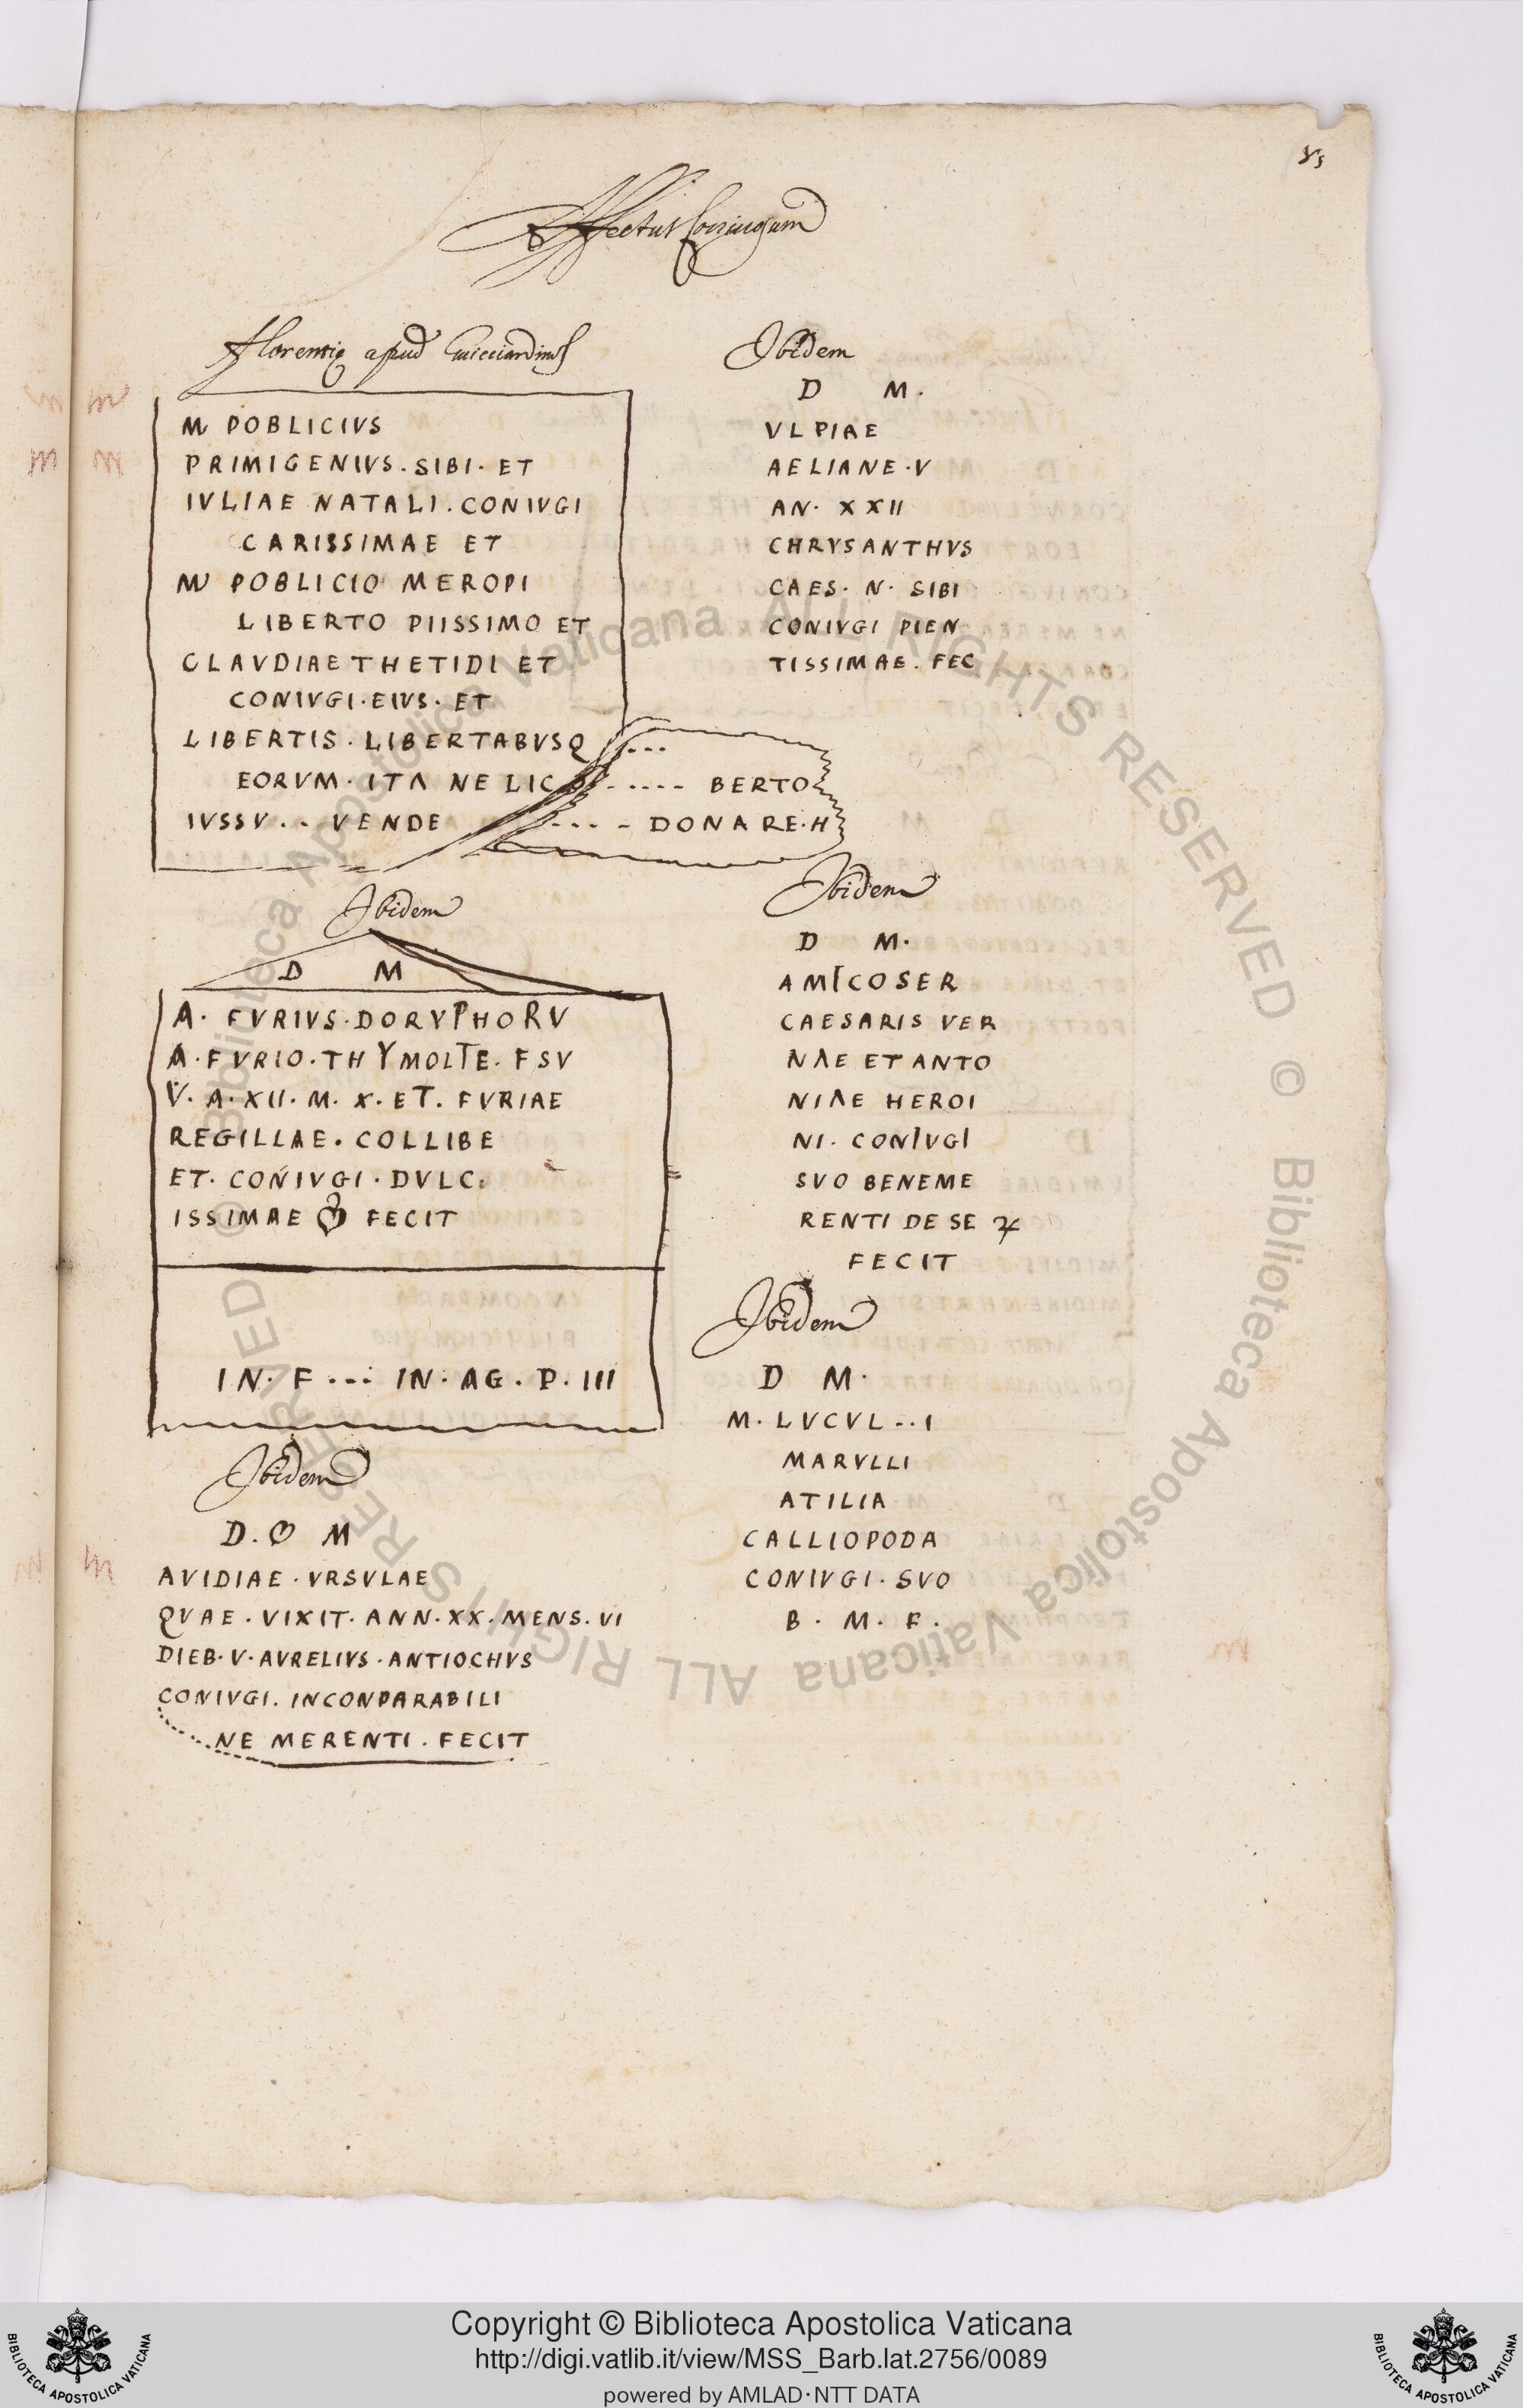 Affectus Coniugum
Florentię apud Guicciardinos
M POBLICIVS
PRIMIGENIVS . SIBI . ET
IVLIAE NATALI . CONIVGI
CARISSIMAE ET
M POBLICIO MEROPI
LIBERTO PIISSIMO ET
CLAVDIAE THETIDI ET
CONIVGI . EIVS . ET
LIBERTIS . LIBERTABVSQ ...
EORVM . ITA NE LIC ..... BERTO
IVSSV . . VENDE .... DONARE . H
Ibidem
D M
A . FVRIVS . DORVPHORV
A . FVRIO . THYMOLTE . F SV
V . A . XII . M . X . ET . FVRIAE
REGILLAE . COLLIBE
ET . CONIVGI . DVLC .
ISSIMAE FECIT
IN . F ... IN . AG . P . III
Ibidem
D . M
AVIDIAE . VRSVLAE
QVAE . VIXIT . ANN . XX . MENS . VI
DIEB . V . AVRELIVS . ANTIOCHVS
CONIVGI . INCONPARABILI
NE MERENTI . FECIT
Ibidem
D M .
VLPIAE
AELIANE . V
AN . XXII
CHRYSANTHVS
CAES . N . SIBI
CONIVGI PIEN
TISSIMAE . FEC
Ibidem
D M .
AMICOSER
CAESARIS VER
NAE ET ANTO
NIAE HEROI
NI . CONIVGI
SVO BENEME
RENTI DE SE
FECIT
Ibidem
D M .
M . LVCVL . . I
MARVLLI
ATILIA
CALLIOPODA
CONIVGI . SVO
B . M . F .
Copyright © Biblioteca Apostolica Vaticana
http://digi.vatlib.it/view/MSS_Barb.lat.2756/0089
powered by AMLAD·NTT DATA